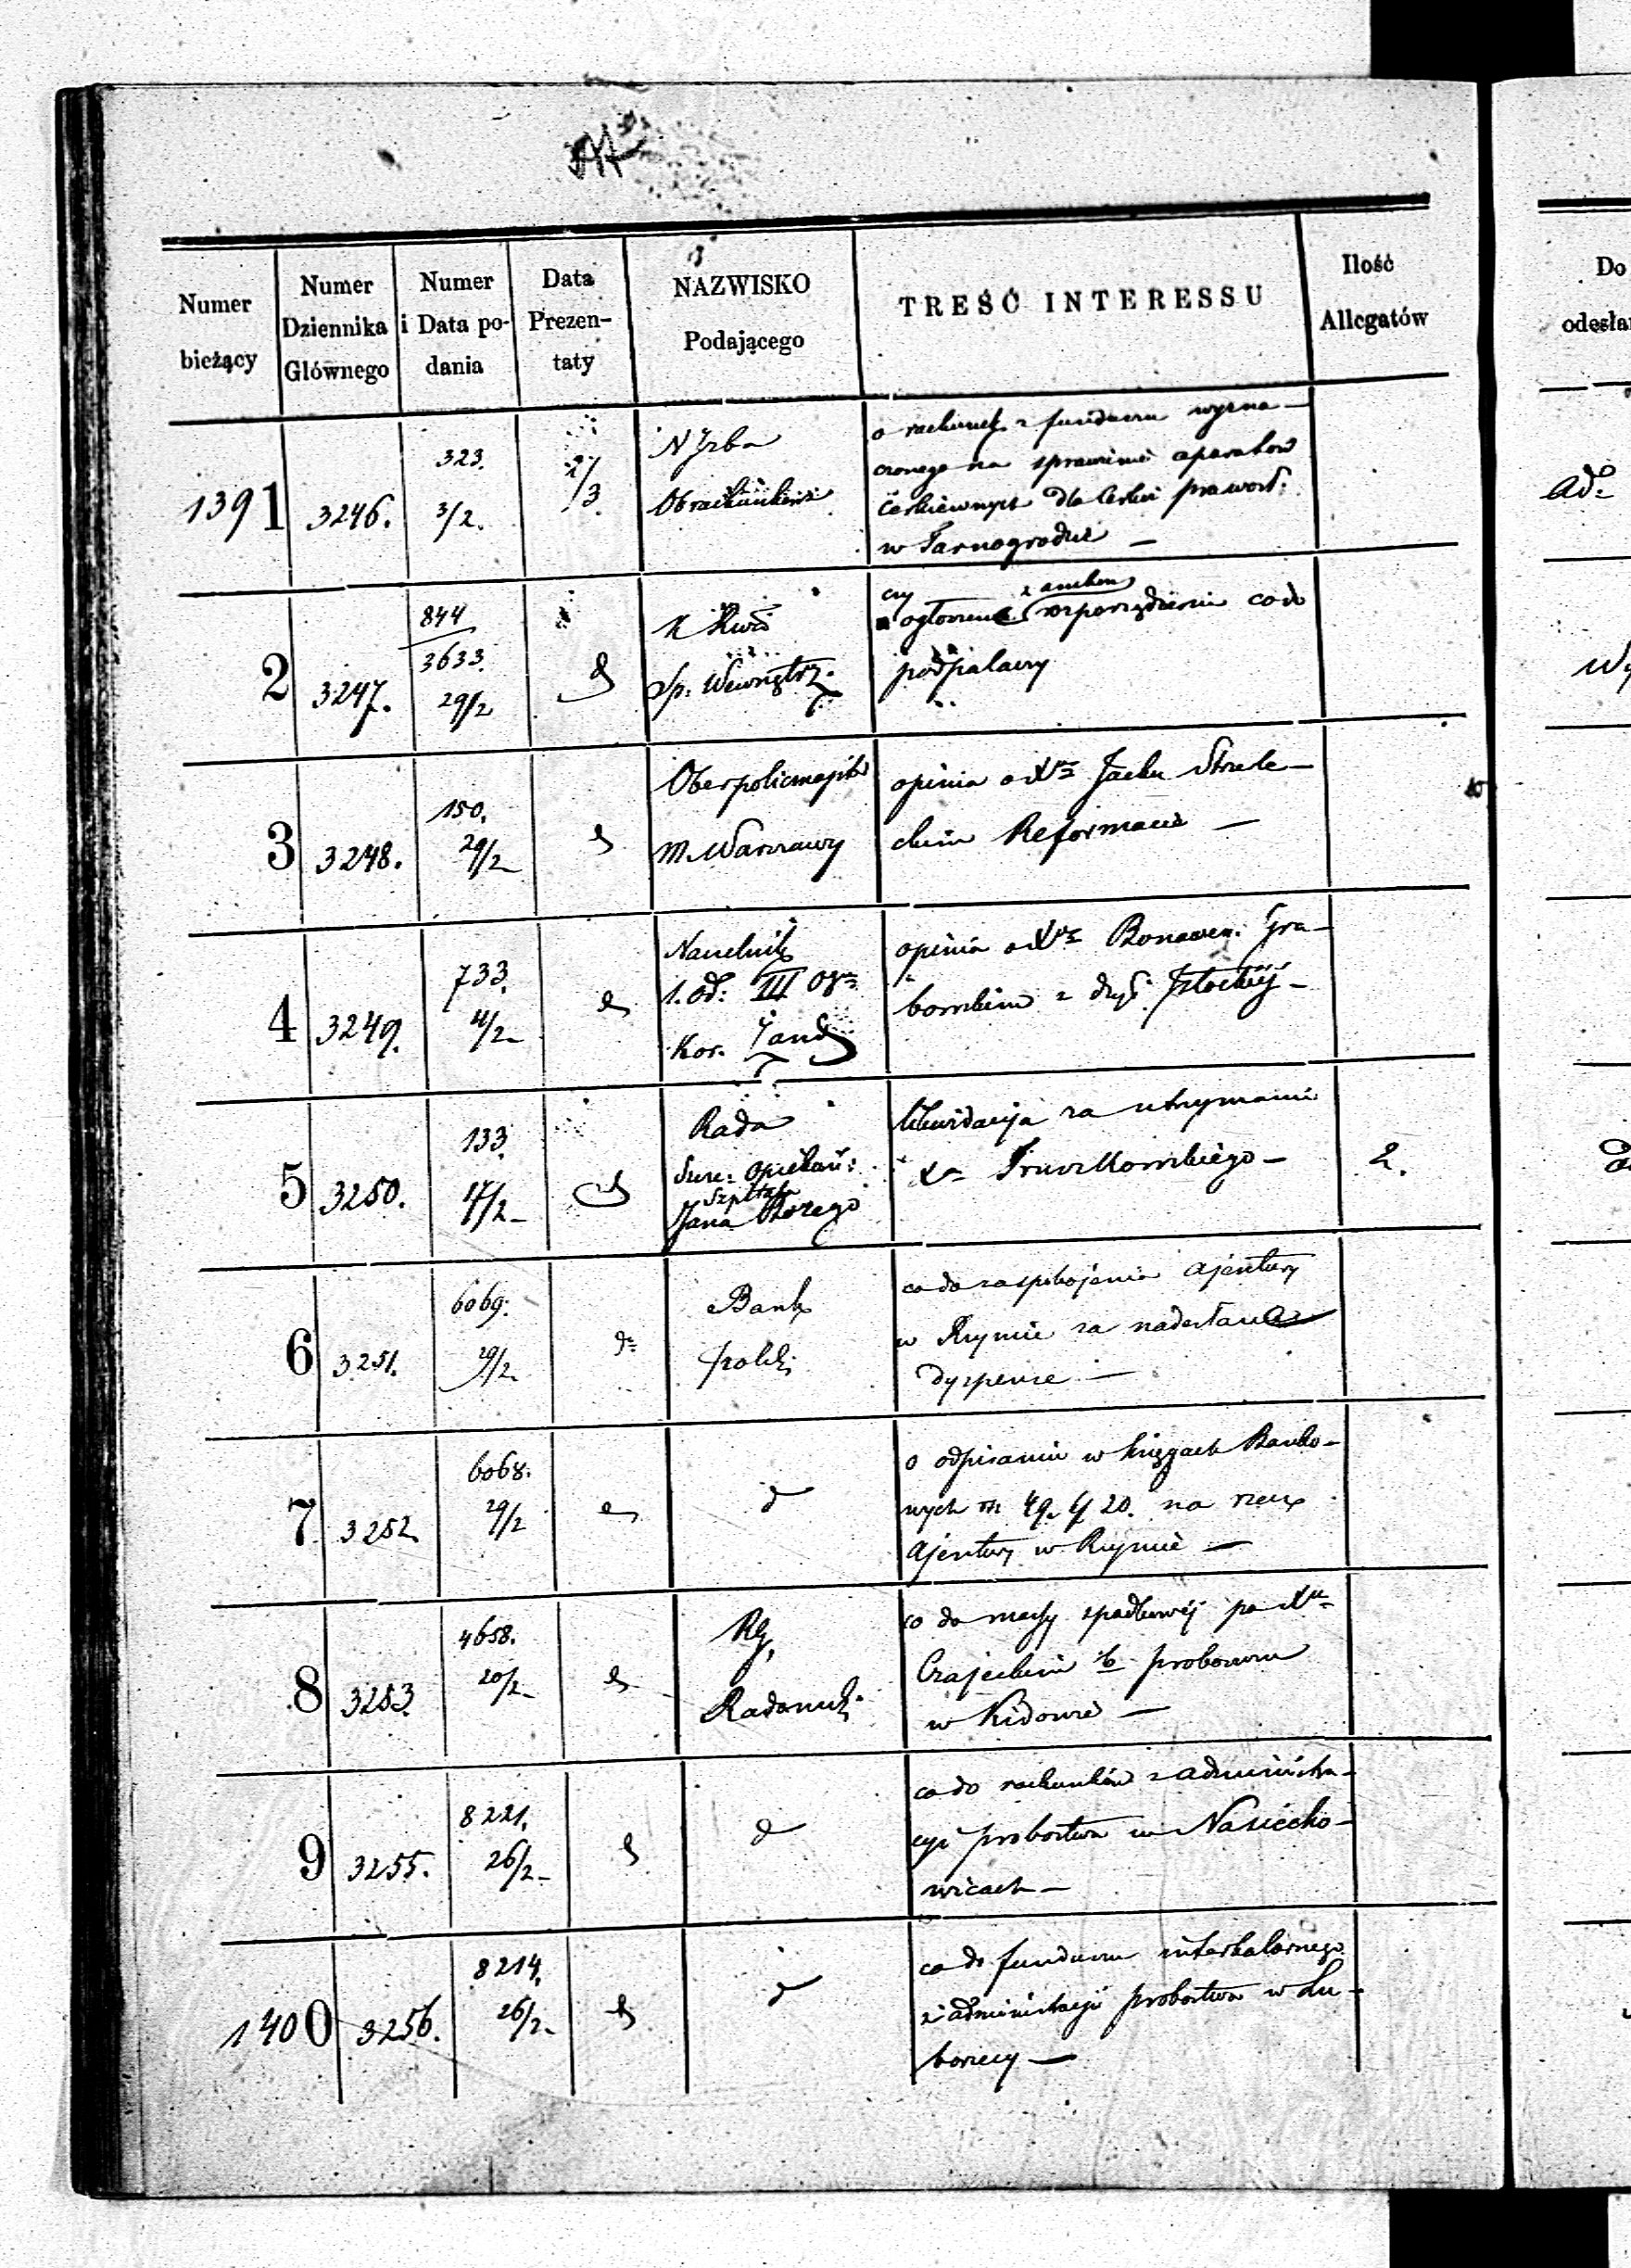 Numer bieżący
Numer Dziennika Głównego
Numer i Data podania
Data Prezentaty
NAZWISKO Podającego
TREŚĆ INTERESSU
Ilość Allegatów
Do
odesła
1391
3246.
323.
3/2.
2/3
N Izba
Obrachunkowa
o rachunek z funduszu wyzna-
czonego na sprawienie aparatów
Cerkiewnych dla Cerkwi prawosł:
w Tarnogrodzie —
Ad:
2
3247.
844
3633.
29/2
Sp: Wewnętrz.
czy
ogłoszone rozporządzenie co do
podpalaczy
3
3248.
150.
29/2
Oberpolicmajster
M. Warszawy
opinia o Xdzu Jacku Strzele-
ckim Reformacie —
4
3249.
733.
4/2
Naczelnik
1. Od: III Ogu
Kor. Żand
opinia o Xdzu Bonawen. Gra-
bowskim z dyec. Płockiej —
5
3250.
133.
17/2 —
Rada
Szcz: Opiekuń:
Szpitala
Jana Bożego
likwidacyja za utrzymanie
2.
6
3251.
6069.
29/2.
do
Bank
polski
co do zaspokojenia Ajentury
w Rzymie za nadesłane
dyspensę —
7
3252
6068.
29/2
d
o odpisanie w księgach Banko-
wych 49. 20. na rzecz
Ajentury w Rzymie —
8
3253.
4658.
20/2 —
RG,
Radomski
co do massy spadkowej po Xdzu
Czajeckim b. proboszczu
w Kidowie —
9
3255.
8221.
26/2 —
d
co do rachunków z administra-
cyi probostwa w Nasiecho-
wicach —
1400
3256.
8214.
26/2 —
d
co do funduszu interkalarnego
z administracyi probostwa w Lu-
borzycy —